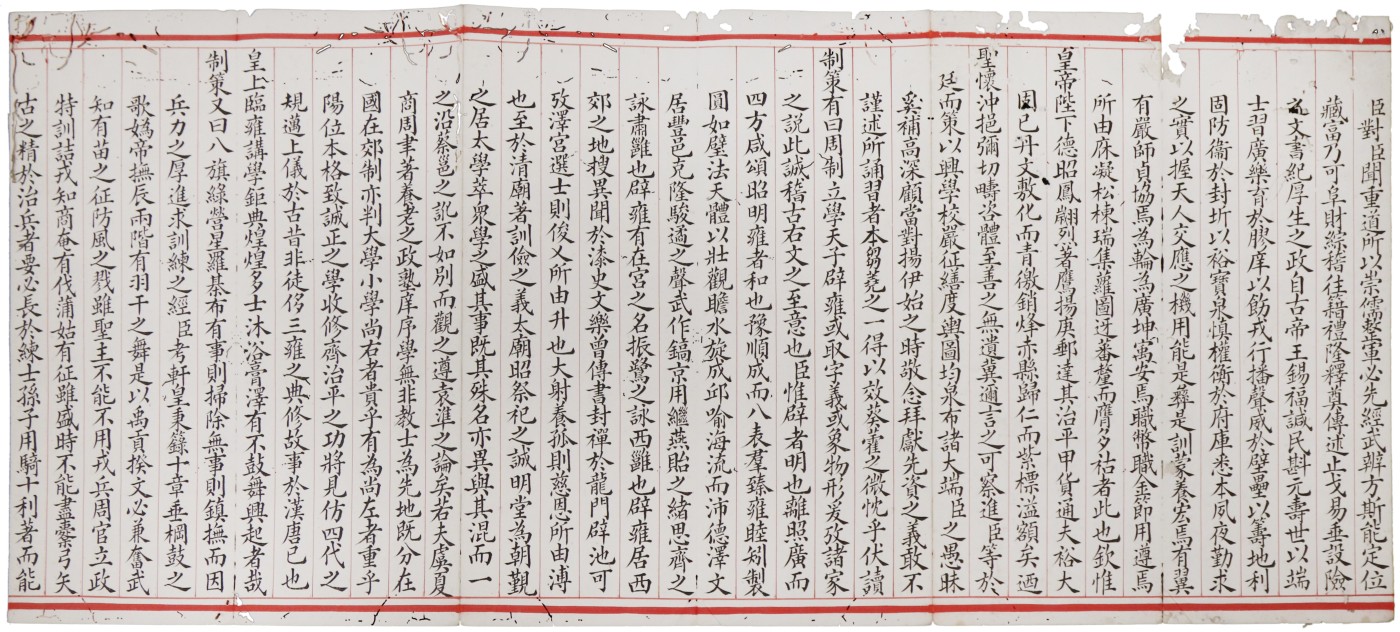 臣對臣聞重道所以崇儒整軍必先經武辨方斯能定位
藏富乃可阜財綜稽往籍禮隆釋奠傳述止戈易垂設險
文書紀厚生之政自古帝王錫福諴民斟元壽世以端
士習廣樂育於膠庠以飭戎行播聲威於壁壘以籌地利
固防衞於封圻以裕寶泉慎權衡於府庫悉本夙夜勤求
之實以握天人交應之機用能是彝是訓蒙養宏焉有翼
有嚴師貞協焉為輪為廣坤寓安焉職幣職金節用遵焉
所由庥凝松棟瑞集蘿圖迓蕃釐而膺多祜者此也欽惟
皇帝陛下德昭鳳翽列著鷹揚庚郵達其治平甲貨通夫裕大
固已丹文敷化而青徼銷烽赤縣歸仁而紫標溢額矣迺
聖懷沖挹彌切疇咨體至善之無遺冀邇言之可察進臣等於
廷而策以興學校嚴征繕度輿圖均泉布諸大端臣之愚昧
奚補高深顧當對揚伊始之時敬念拜獻先資之義敢不
謹述所誦習者本芻蕘之一得以效葵藿之微忱乎伏讀
制策有曰周制立學天子辟雍或取字義或象物形爰攷諸家
之說此誠稽古右文之至意也臣惟辟者明也離照廣而
四方咸頌昭明雍者和也豫順成而八表羣臻雍睦矧製
圓如璧法天體以壯觀瞻水旋成邱喻海流而沛德澤文
居豐邑克隆駿遹之聲武作鎬京用繼燕貽之緒思齊之
詠肅雝也辟雍有在宮之名振鷺之詠西雝也辟雍居西
郊之地搜異聞於漆史文樂曾傳書封禪於龍門辟池可
攷澤宮選士則俊乂所由升也大射養孤則慈恩所由溥
也至於清廟著訓儉之義太廟昭祭祀之誠明堂為朝覲
之居太學萃眾學之盛其事既其殊名亦異與其混而一
之沿蔡邕之訛不如別而觀之遵袁準之論矣若夫虞夏
商周聿著養老之政塾庠序學無非教士為先地既分在
國在郊制亦判大學小學尚右者貴乎有為尚左者重乎
陽位本格致誠正之學收修齊治平之功將見仿四代之
規邁上儀於古昔非徒侈三雍之典修故事於漢唐已也
皇上臨雍講學鉅典煌煌多士沐浴膏澤有不鼓舞興起者哉
制策又曰八旗綠營星羅棊布有事則掃除無事則鎮撫而因
兵力之厚進求訓練之經臣考軒皇秉籙十章垂棡鼓之
歌媯帝撫辰兩階有羽干之舞是以禹貢揆文必兼奮武
知有苗之征防風之戮雖聖主不能不用戎兵周官立政
特訓詰戎知商奄有伐蒲姑有征雖盛時不能盡櫜弓矢
古之精於治兵者要必長於練士孫子用騎十利著而能